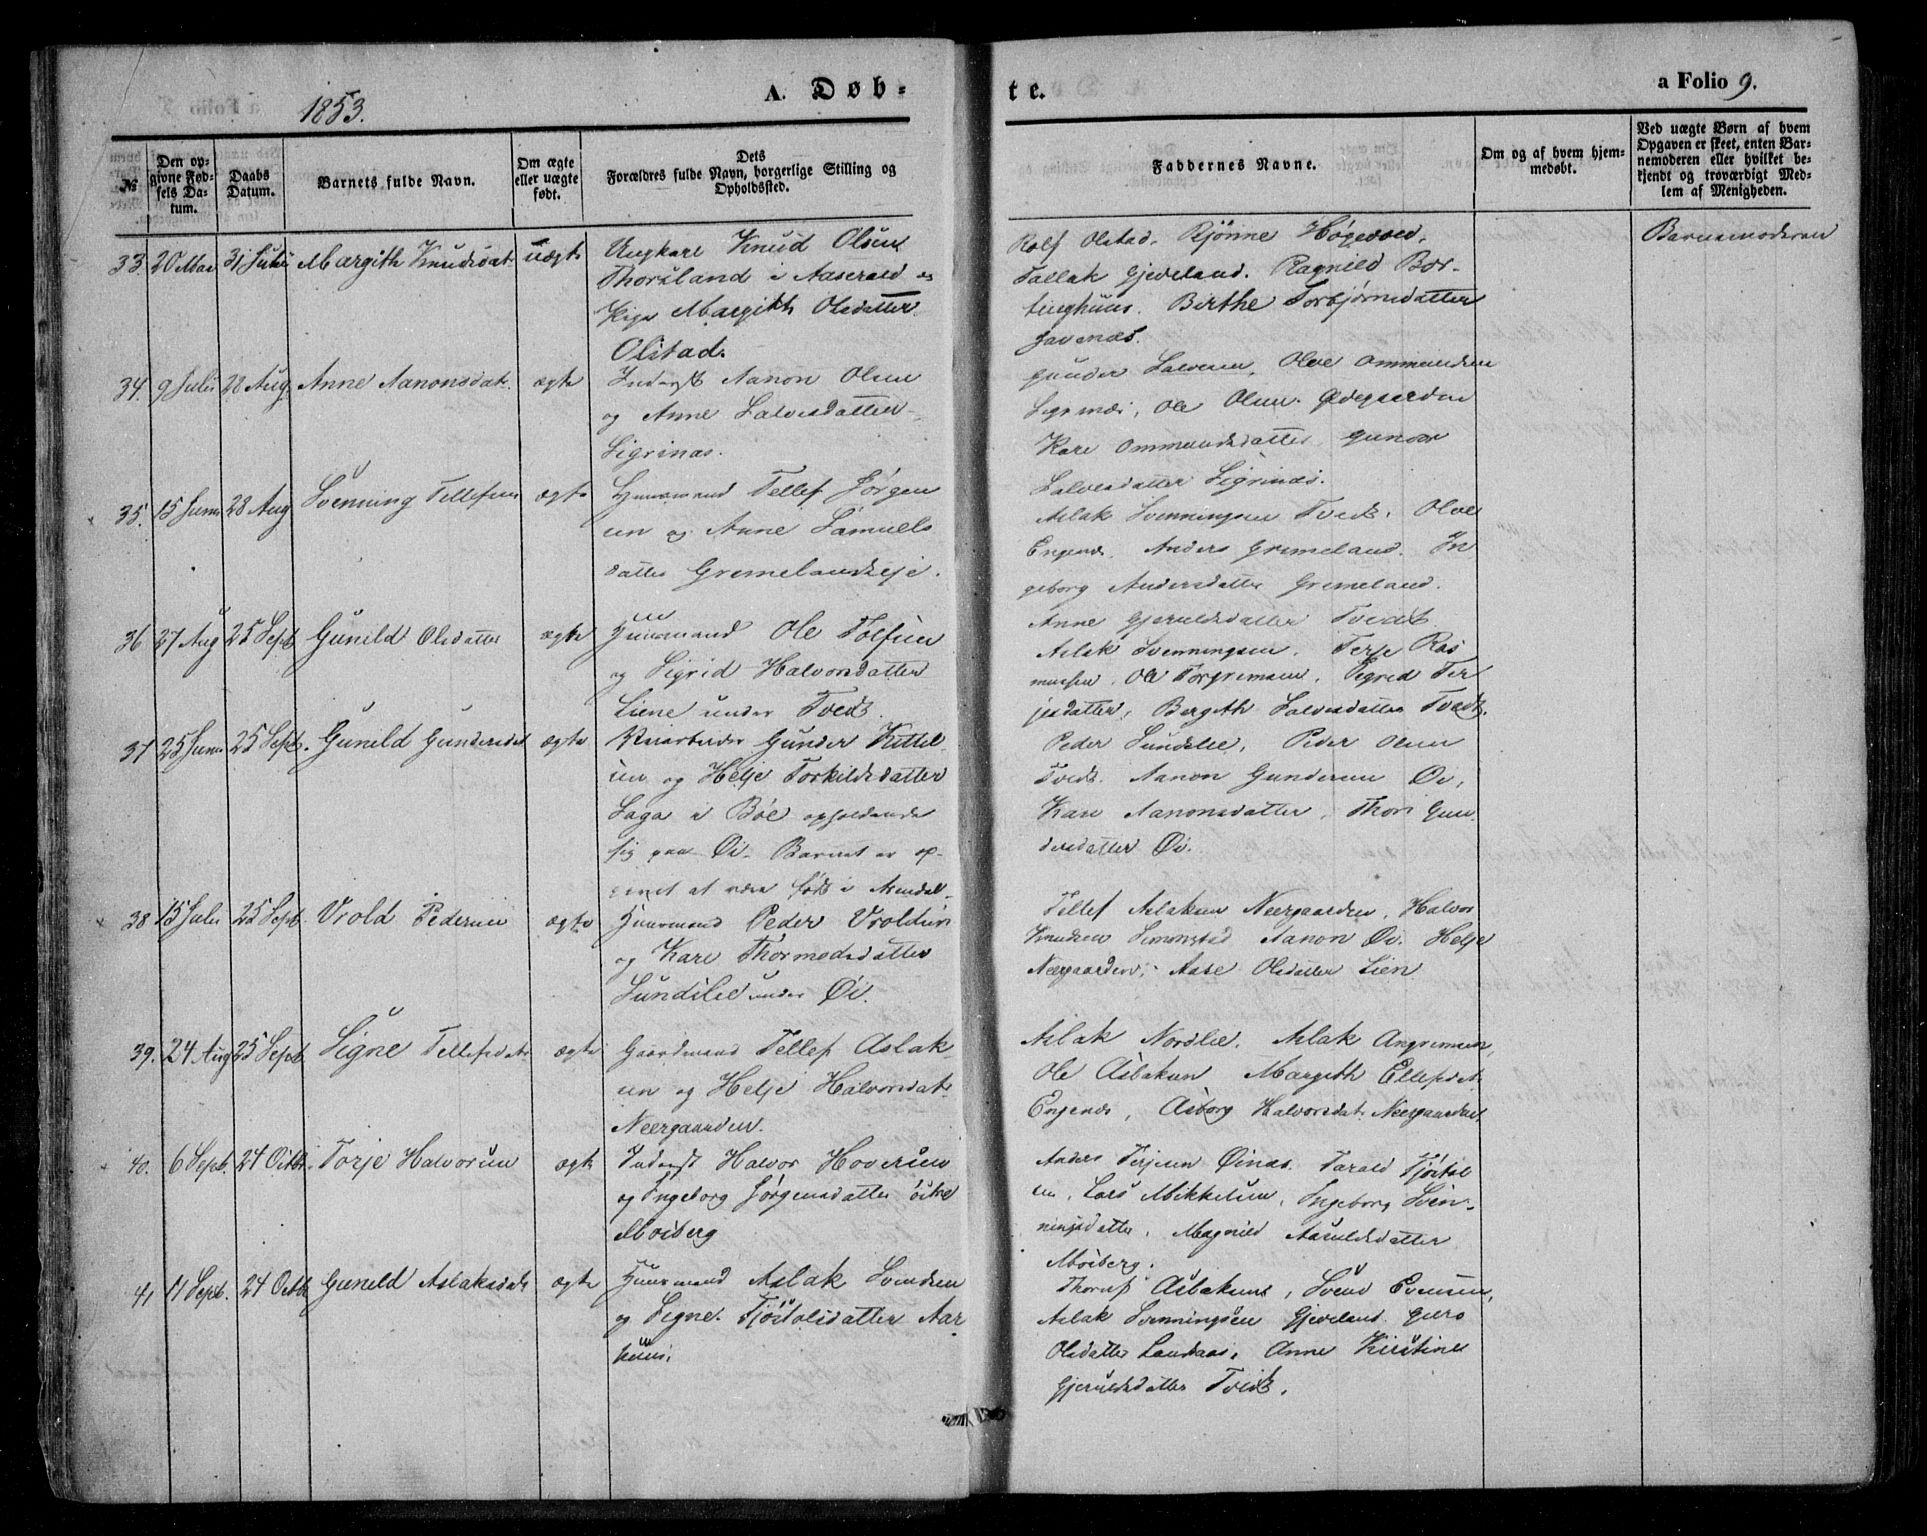 1853.
A. Døb-
te.
a Folio 9.
№
Den op-
givne Fød-
sels Da-
tum.
Daabs
Datum.
Barnets fulde Navn.
Om ægte
eller uægte
født.
Dets
Forældres fulde Navn, borgerlige Stilling og
Opholdssted.
Faddernes Navne.
Om og af hvem hjem-
medøbt.
Ved uægte Børn af hvem
Opgaven er skeet, enten Bar-
nemoderen eller hvilket be-
kjendt og troværdigt Med-
lem af Menigheden.
33. 20 Mai 31 Juli Margith Knudsdat. uægte
Ungkarl Knud Olsen
Thorsland i Aaserald og
Pige Margith Olsdatter
Olstad.
Rolf Olstad. Rjönne Høgevold,
Tallak Gjeveland. Ragnild Bør-
tinghuus. Birthe Torbjørnsdatter
Javenæs.
Barnemoderen
34. 9 Juli 28 Aug. Anne Aanonsdat. ægte
Inderst Aanon Olsen
og Anne Salvesdatter
Sigrinæs.
Gunder Salvesen, Olve Ommundsen
Sigrinæs, Ole Olsen Ødegaarden
Kare Ommundsdatter, Gunvor
Salvesdatter Sigrinæs.
35. 15 Juni 28 Aug Svenning Tellefsen ægte
Huusmand Tellef Jörgen
sen og Anne Samuels
datter Grimelandseje.
Aslak Svenningsen Tvedt. Olve
Engenæs. Anders Grimeland. In
geborg Andersdatter Grimeland.
Anne Gjeruldsdatter Tvedt.
36 27 Aug 25 Sept. Gunild Olsdatter ægte
Huusmand Ole Tolfsen
og Sigrid Halvorsdatter
Liene under Tvedt.
Aslak Svenningsen. Terje Ras
mussen. Ole Torgrimsen. Sigrid Ter
jesdatter, Bergith Salvesdatter Tvedt.
37 25 Juni 25 Sept. Gunild Gundersdat ægte
Gunder Kittel-
sen og Helje Torkildsdatter
Saga i Bøe opholdende
sig paa Øi. Barnet er op-
givet at være født i Arendal.
Peder Sundslie, Peder Olsen
Tvedt. Aanon Gundersen Øi,
Kari Aanonsdatter, Thore Gun-
dersdatter Øi.
38 15 Juli 25 Sept Vrold Pedersen ægte
Huusmand Peder Vroldsen
og Kare Thormodsdatter
Sundslie under Øi.
Tellef Aslaksen Neergaarden, Halvor
Knudsen Simonstad Aanon Øi. Helje
Neergaarden, Aase Olsdatter Lien
39. 24 Aug 25 Sept Signe Tellefsdat. ægte
Gaardmand Tellef Aslak-
sen og Helje Halvorsdat.
Neergaarden.
Aslak Nordlie. Aslak Angrimsen,
Ole Aslaksen Margith Ellefsdat.
Engenæs, Asborg Halvorsdat. Neergaarden,
40. 6 Sept. 24 Octbr. Torje Halvorsen ægte
Inderst Halvor Hoversen
og Ingeborg Jørgensdatter östre
Moiberg
Anders Terjesen Øinæs. Tarald Tjöstol
sen, Lars Mikkelsen, Ingeborg Sven-
ningsdatter, Magnild Aasuldsdatter
Moiberg.
41 11 Sept. 24 Octbr Gunild Aslaksdat. ægte
Huusmand Aslak Svendsen
og Signe Tjöstolsdatter Aar
huus.
Aslaksen, Svend Evensen,
Aslak Svenningsen Gjeveland. Guro
Olsdatter Landaas, Anne Kirstine
Gjeruldsdatter Tvedt.